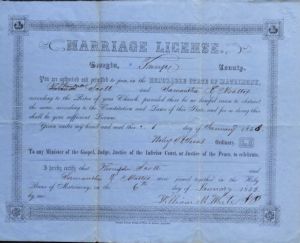 MARRIAGE LICENSE.
Georgia, Troup County.
You are authorized and permitted to join in the HONORABLE STATE OF MATRIMONY,
Scott and Samantha
according to the Rites of your Church; provided there be no lawful cause to obstruct
the same, according to the Constitution and Laws of this State, and for so doing this
shall be your sufficient License.
Given under my hand and seal this day of January 185
Ordinary.
To any Minister of the Gospel, Judge, Justice of the Inferior Court, or Justice of the Peace, to celebrate.
I hereby certify that Scott and
were joined together in the Holy
Bans of Matrimony, on the 6th day of January 185
William M